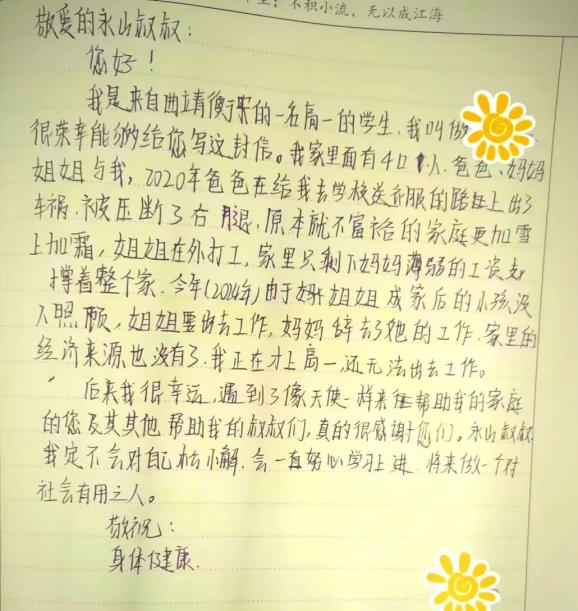 不积小流，无以成江海
敬爱的永山叔叔：
您好！
我是来自曲靖衡水的一名高一的学生，我叫做
很荣幸能够给您写这封信。我家里面有4口人，爸爸、妈妈
姐姐与我，2020年爸爸在给我去学校送衣服的路上出了
车祸，被压断了右腿，原本就不富裕的家庭更加雪
上加霜，姐姐在外打工，家里只剩下妈妈薄弱的工资支
撑着整个家，今年(2024年)由于姐姐成家后的小孩没
人照顾，姐姐要出去工作，妈妈辞去了她的工作，家里的
经济来源也没有了，我正在才上高一，还无法出去工作。
后来我很幸运，遇到了像天使一样来帮助我的家庭
的您及其其他帮助我的叔叔们，真的很感谢您们。永山叔叔，
我定不会对自己松懈，会一直努心学习上进，将来做一个对
社会有用之人。
敬祝：
身体健康．